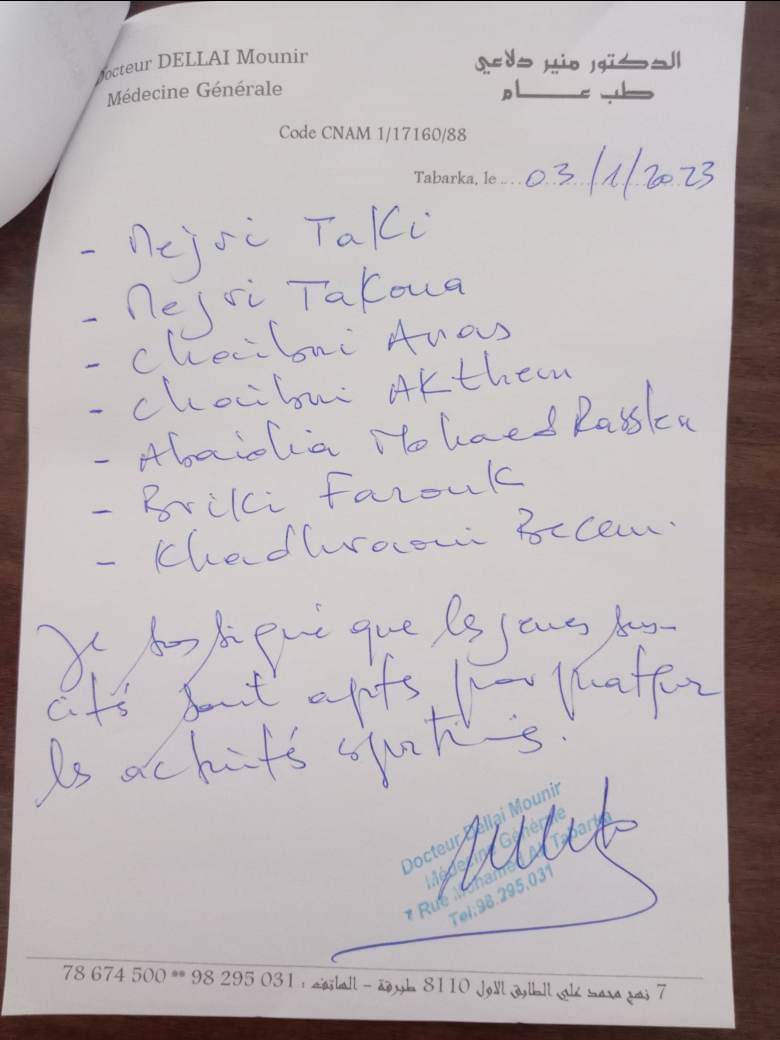 Docteur DELLAI Mounir
Médecine Générale
الدكتور منير دلاعي
طب عـــــام
Code CNAM 1/17160/88
Tabarka, le ... 03/1/2023
- Mejri Taki
- Mejri Takoua
- Chaibni Anas
- Chaibni Akthem
- Abaidia Mohaed
- Briki Farouk
- Khadhraoui Becem.
Je sossigné que les jenes sus-
cités sont apts por pratiqur
les activités sportives.
Docteur Dellai Mounir
Médecine Générale
7 Rue Mohamed Ali Tabarka
Tel:98.295.031
7 نهج محمد علي الطابق الاول 8110 طبرقة - الهاتف : 031 295 98 ** 500 674 78